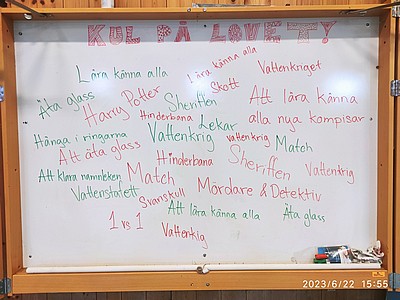 KUL PÅ LOVET!
Lära känna alla
Lära känna alla
Vattenkriget
Skott
Äta glass
Harry Potter
Sheriffen
Att lära känna
alla nya kompisar
Hinderbana
Lekar
Hänga i ringarna
Vattenkrig
vattenkrig
Match
Att äta glass
Hinderbana
Sheriffen
Vattenkrig
Att klara namnleken
Match
Vattenstafett
Svanskull
Mördare & Detektiv
1 vs 1
Att lära känna alla
Äta glass
Vattenkig
2023/6/22 15:55